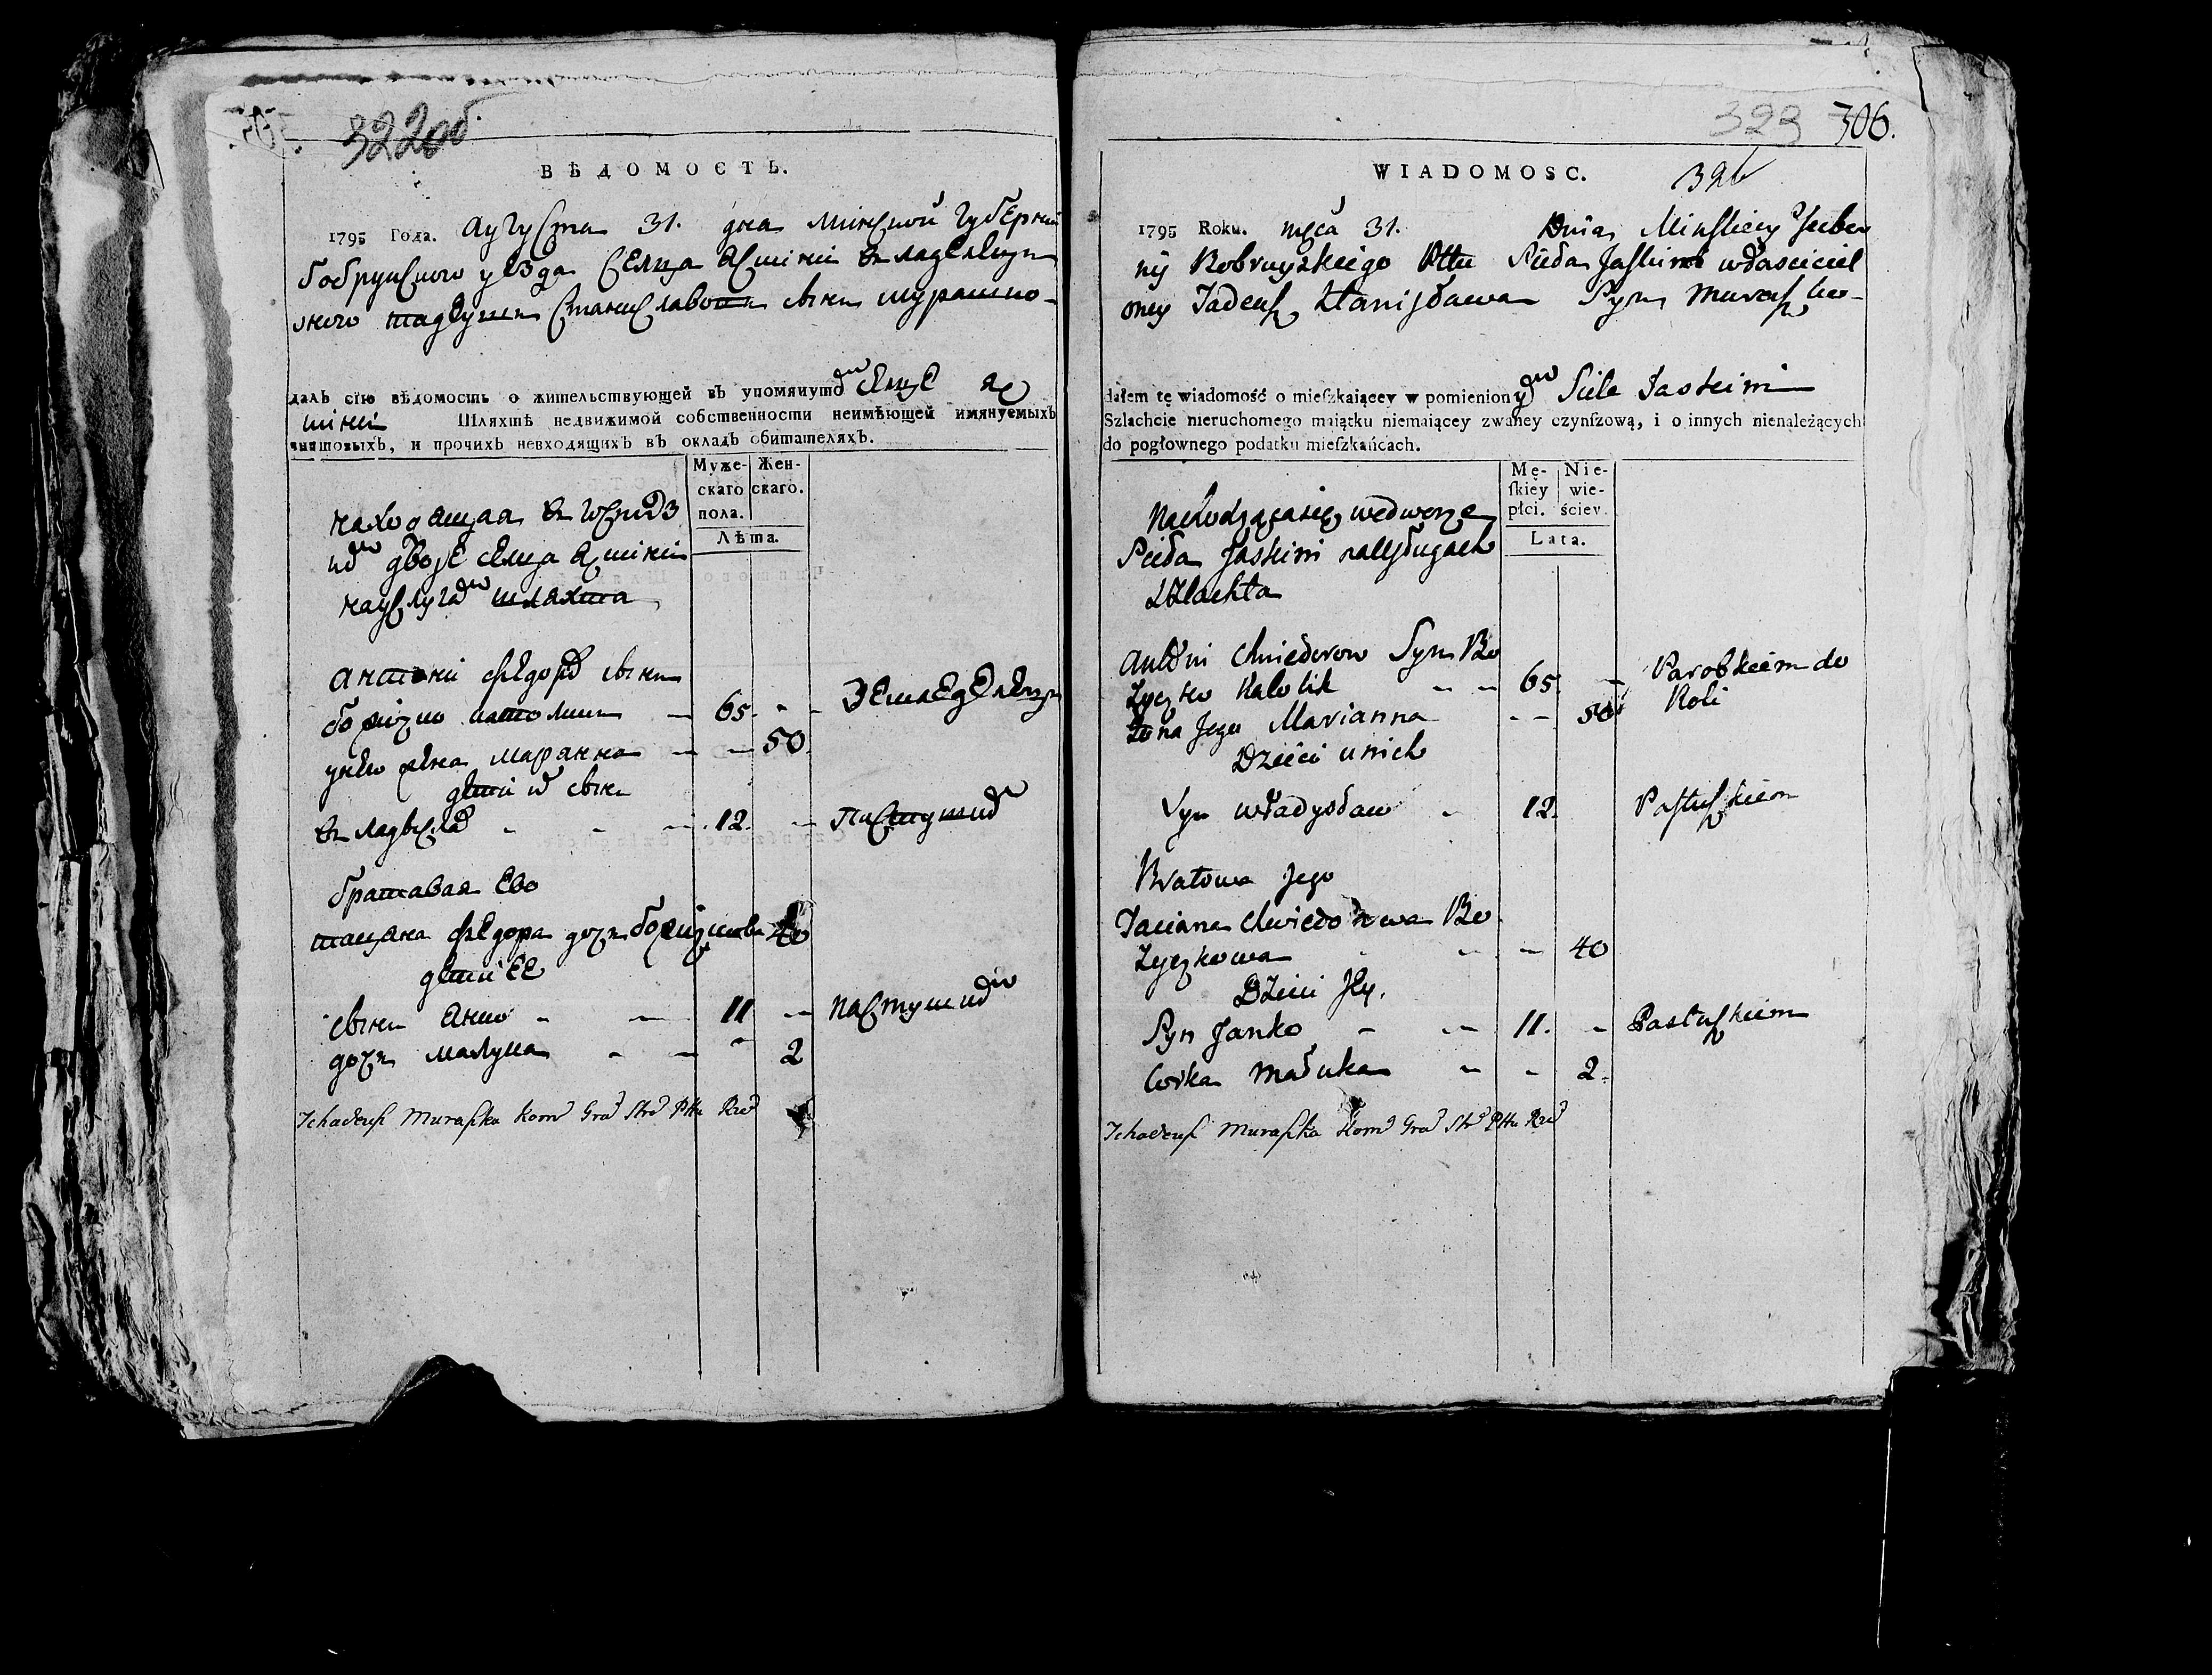 322об
ВѢДОМОСТЬ.
1795 Года. Августа 31. дня Минской Губернии
бобруйского уезда Селца Яскини владелец
Тадеуш Станиславовъ сынъ Мурашко
далъ сїю вѣдомость о жительствующей въ упомянутом Селце Яс
кини Шляхтѣ недвижимой собственности неимѣющей имянуемыхъ
чиншовыхъ, и прочихъ невходящихъ въ окладъ обитателяхъ.
Муже- Жен-
скаго скаго.
пола.
Лѣта.
находящая в
дворе Селца Яскини
науслугах шляхта
Антони Федоров сынъ
католик 65
жена Марянна 50
дети их сынъ
владыслав 12. пастушком
братавая Ево
тацяна Федора доч 40
дети Ее
сынъ Янко 11 пастушком
доч малука 2
Thadeuſz Muraſzka Kom Gra Str Pttu Rze
323 306.
WIADOMOSC.
1795 Roku. męca 31. Dnia Minſkiey Guber
nij Bobruyskiego Pttu Sieła Jaſkini właściciel
oney Tadeuſz Stanisława Syn Muraſzko
dałem tę wiadomość o mieſzkaiącey w pomienionym Siele Jaskini
Szlachcie nieruchomego maiątku niemaiącey zwaney czynſzową, i o innych nienależących
do pogłownego podatku mieſzkańcach.
Mę- Nie-
ſkiey wie-
płci. ściey.
Lata.
Nachodzącasię wedworze
Sieła Jaskini nausługach
Szlachta
Antoni Chwiedorow Syn Bo
życzko Katolik 65. Parobkiem do
Żona Jego Marianna 50 Roli
Dzieci u nich
Syn Władysław 12. Paſtuſzkiem
Bratowa Jego
Taciana Chwiedorowa Bo
życzkowa 40
Dzieci Jey.
Syn Janko 11. Pastuſzkiem
Corka Małuka 2.
Thadeuſz Muraſzka Kom Gra Str Pttu Rze